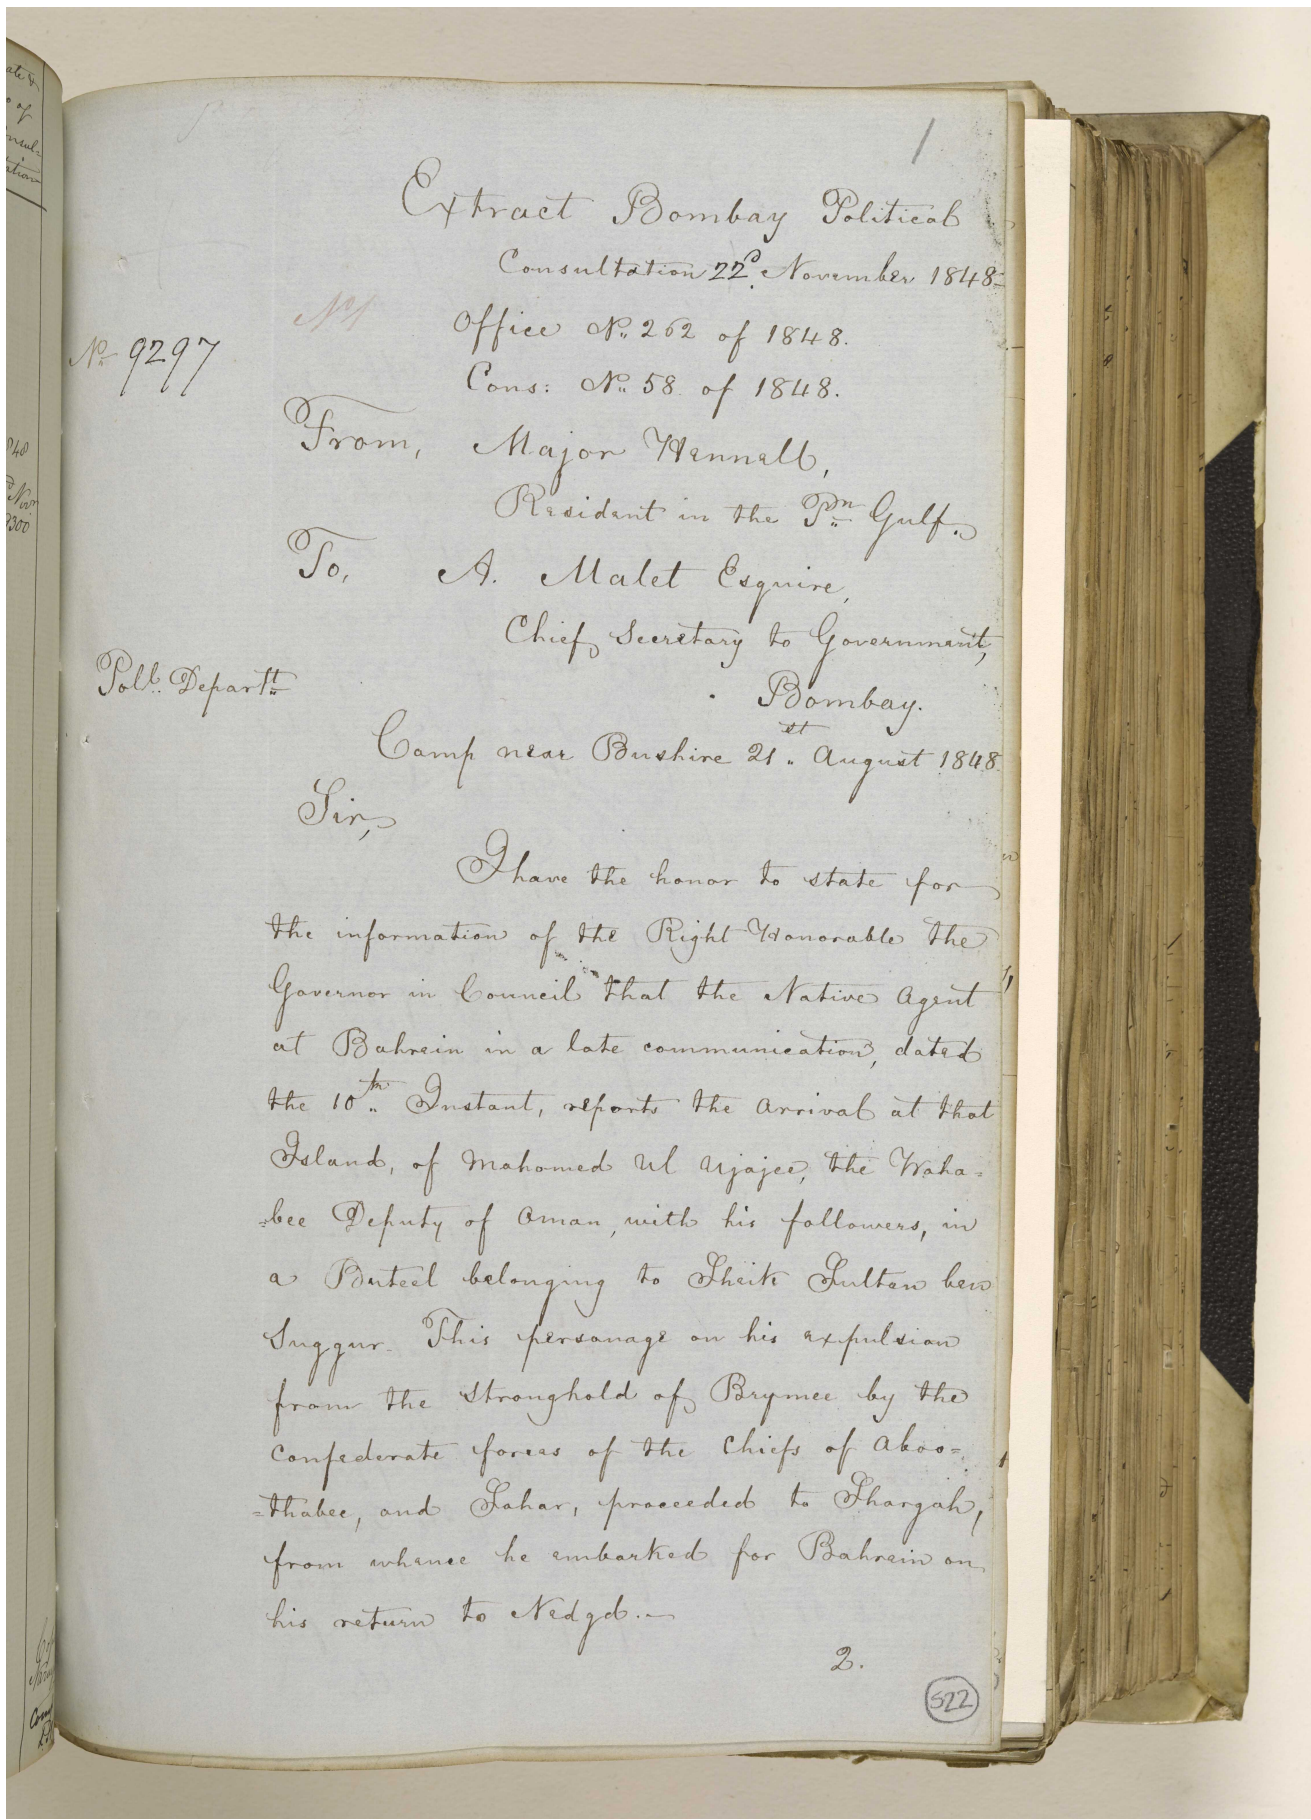 1
Extract Bombay Political
Consultation 22d. November 1848
Office No. 262 of 1848.
No. 9297
Cons: No. 58 of 1848.
From, Major Hennell,
Resident in the Pn. Gulf.
To, A. Malet Esquire,
Chief Secretary to Government,
Poll. Departt.
Bombay.
Camp near Bushire 21st. August 1848
Sir,
I have the honor to state for
the information of the Right Honorable the
Governor in Council that the Native Agent
at Bahrein in a late communication, dated
the 10th. Instant, reports the arrival at that
Island, of Mahomed Ul Ujajee, the Waha=
=bee Deputy of Oman, with his followers, in
a Buteel belonging to Sheik Sultan ben
Suggur. This personage on his expulsion
from the stronghold of Brymee by the
confederate forces of the Chiefs of Aboo=
=thabee, and Sohar, proceeded to Shargah,
from whence he embarked for Bahrein on
his return to Nedgd.—
2.
522